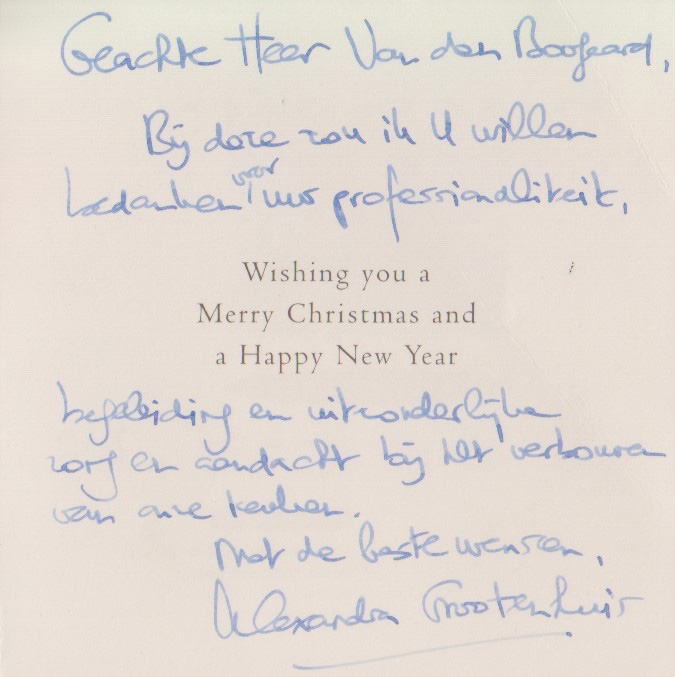 Geachte Heer Van den Boogaard,
Bij deze zou ik U willen
bedanken voor uw professionaliteit,
Wishing you a
Merry Christmas and
a Happy New Year
begeleiding en uitzonderlijke
zorg en aandacht bij het verbouwen
van onze keuken.
Met de beste wensen,
Alexandra Grootenhuis